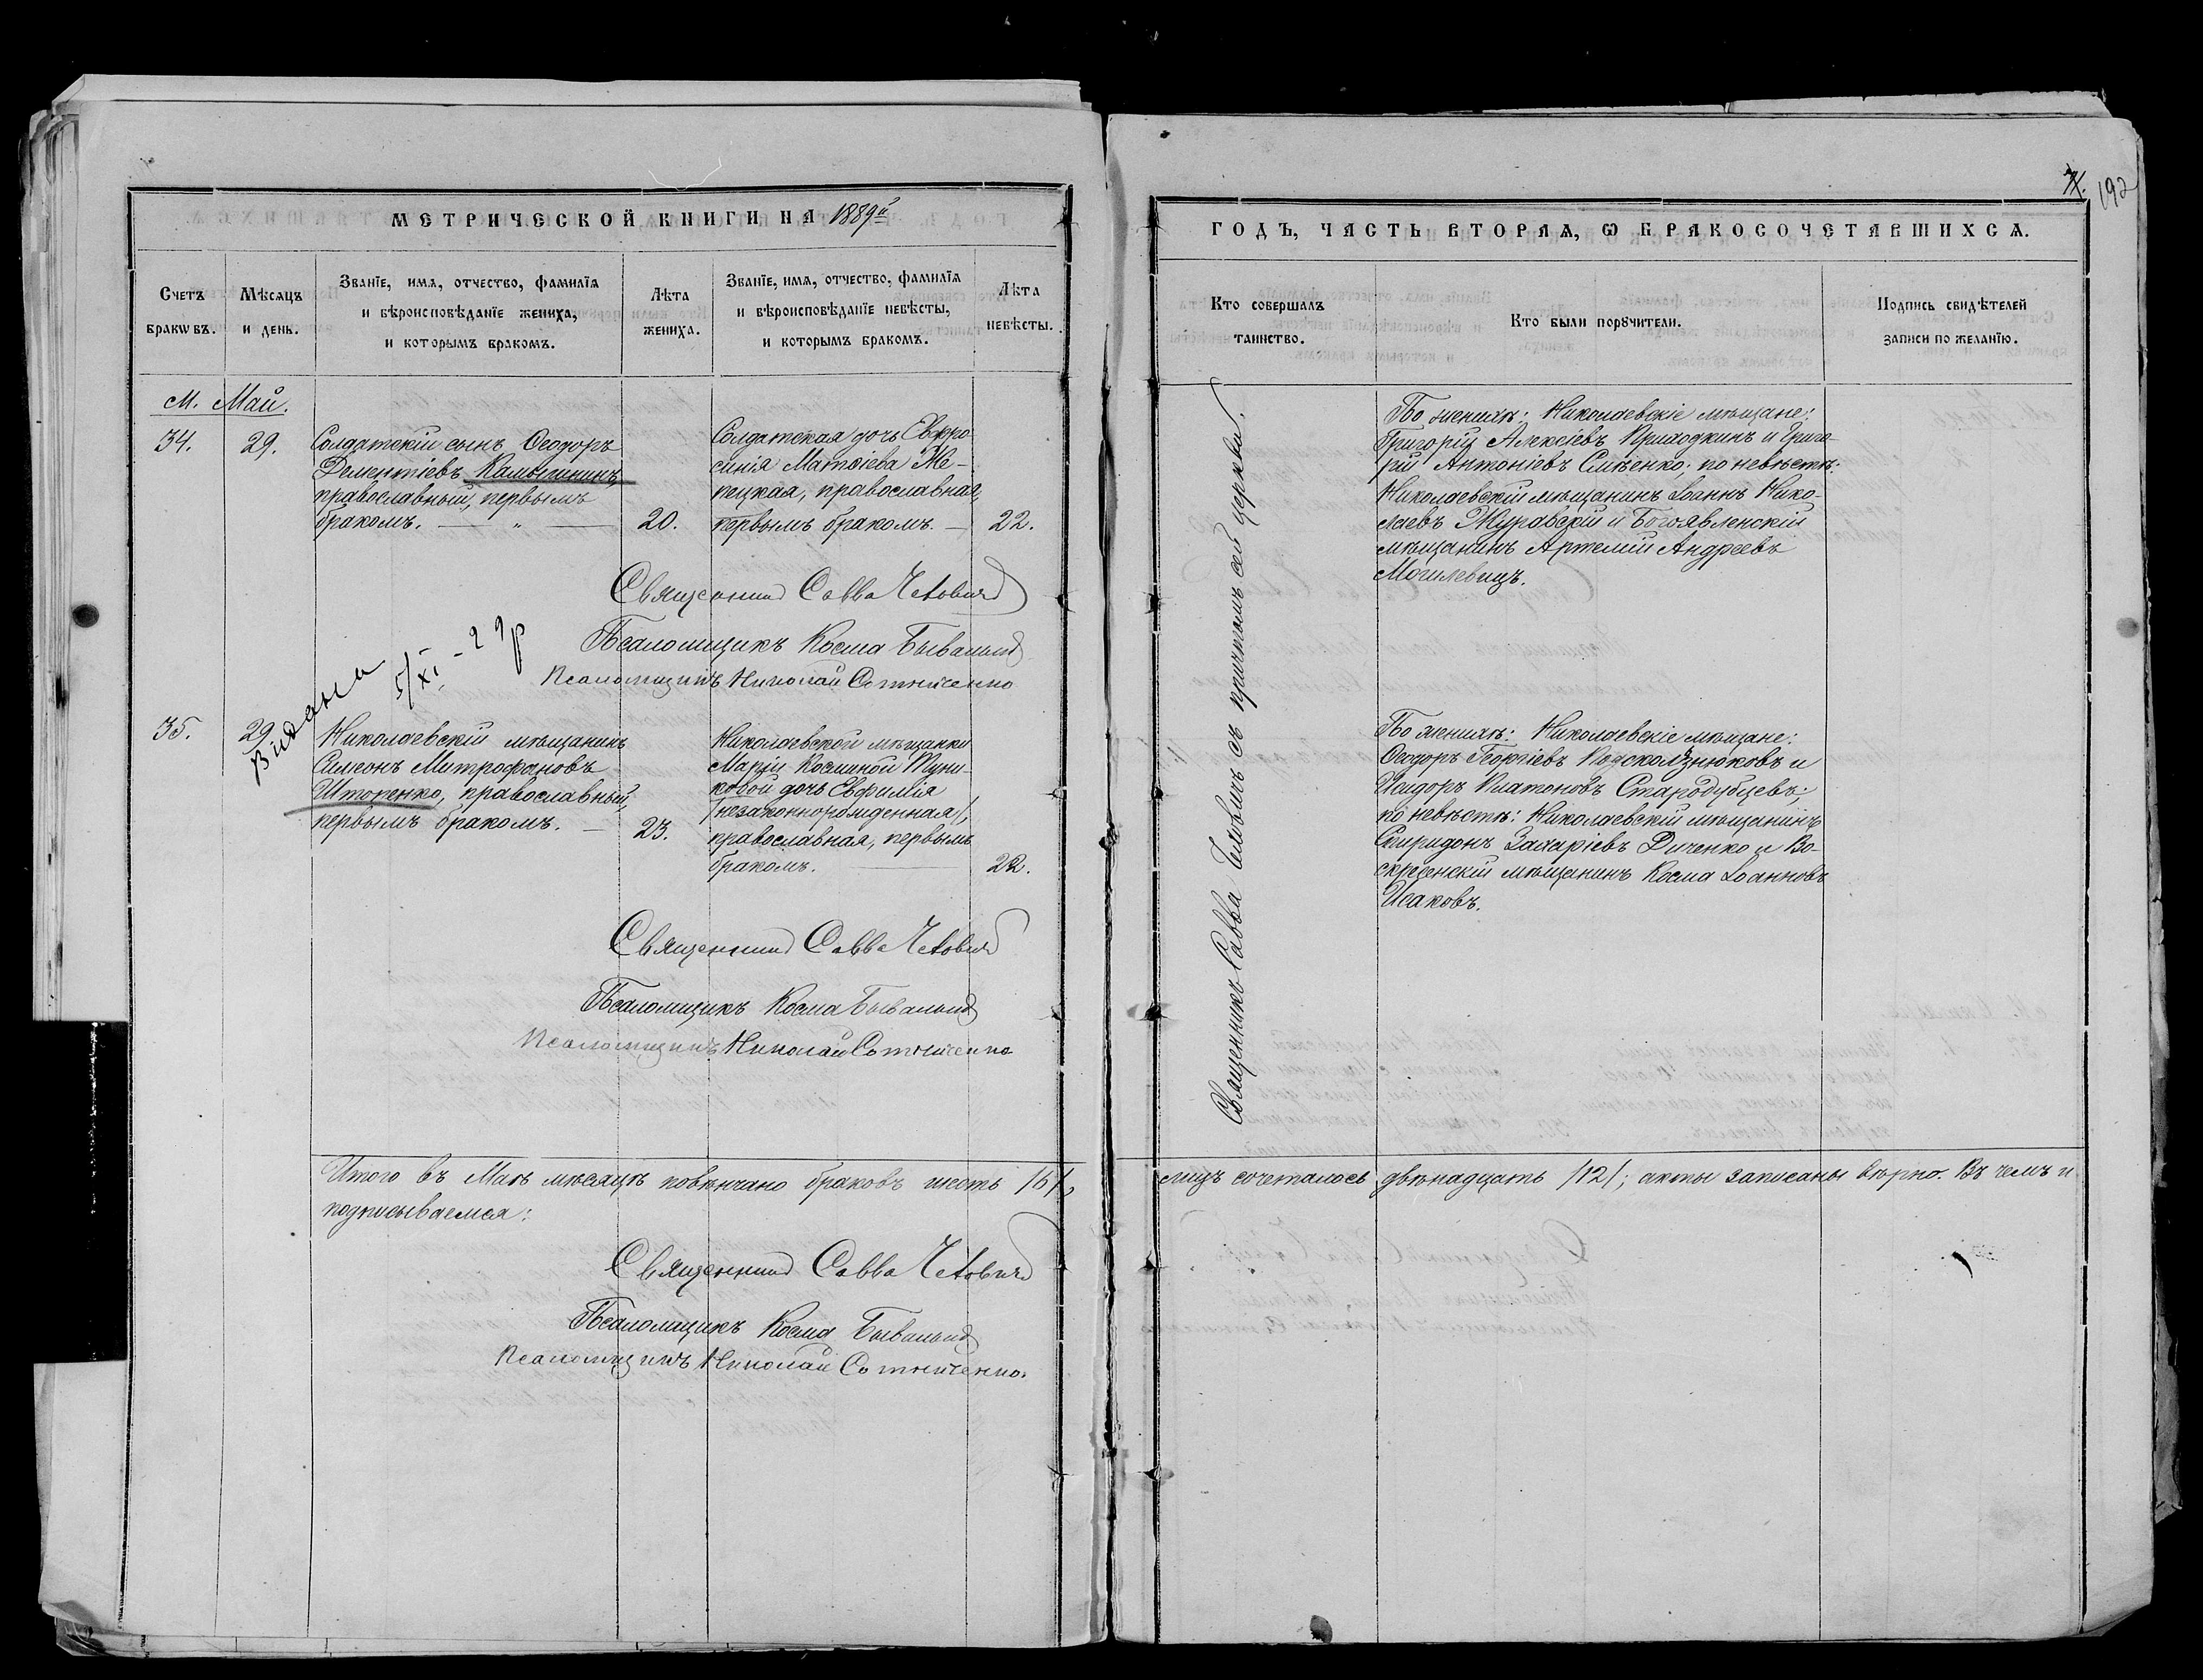 МЕТРИЧЕСКОЙ КНИГИ НА 1889й
Счетъ браковъ.
Мѣсяцъ и день.
Званіе, имя, отчество, фамилія
и вѣроисповѣданіе жениха,
и которымъ бракомъ.
Лѣта жениха.
Званіе, имя, отчество, фамилія
и вѣроисповѣданіе невѣсты,
и которымъ бракомъ.
Лѣта невѣсты.
М. Май.
34. 29.
Солдатскій сынъ Ѳеодоръ
Дементіевъ Камышнинъ,
православный, первымъ
бракомъ. — „ — 20.
Солдатская дочь Евфро-
синія Матѳіева Же-
пецкая, православная,
первымъ бракомъ. — 22.
Священникъ Савва
Псаломщикъ Косма
Псаломщикъ Николай Сотниченко
Видана 5/XI - 29р
35. 29.
Николаевскій мѣщанинъ
Симеонъ Митрофановъ
Шторенко, православный,
первымъ бракомъ. — 23.
Николаевской мѣщанки
Маріи Косминой Туни-
ковой дочь Евфимія
/незаконнорожденная/,
православная, первымъ
бракомъ. — 22.
Священникъ Савва
Псаломщикъ Косма
Псаломщикъ Николай Сотниченко
Итого въ Маѣ мѣсяцѣ повѣнчано браковъ шесть /6/,
подписываемся:
Священникъ Савва
Псаломщикъ Косма
Псаломщикъ Николай Сотниченко.
192
ГОДЪ, ЧАСТЬ ВТОРАЯ, Ѡ БРАКОСОЧЕТАВШИХСЯ.
Кто совершалъ таинство.
Кто были порꙋчители.
Подпись свидѣтелей
записи по желанію.
Священникъ Савва съ причтомъ сей церкви.
По женихѣ: Николаевскіе мѣщане:
Григорій Алексіевъ Приходкинъ и Григо-
рій Антоніевъ Смѣенко; по невѣстѣ:
Николаевскій мѣщанинъ Іоаннъ Нико-
лаевъ Журавскій и Богоявленскій
мѣщанинъ Артемій Андреевъ
Могилевецъ.
По женихѣ: Николаевскіе мѣщане:
Ѳеодоръ Георгіевъ Подсколзнюковъ и
Исидоръ Платоновъ Стародубцевъ;
по невѣстѣ: Николаевскій мѣщанинъ
Спиридонъ Захаріевъ Диченко и Во-
скресенскій мѣщанинъ Косма Іоанновъ
Исаковъ.
лицъ сочеталось двѣнадцать /12/; акты записаны вѣрно. Въ чемъ и